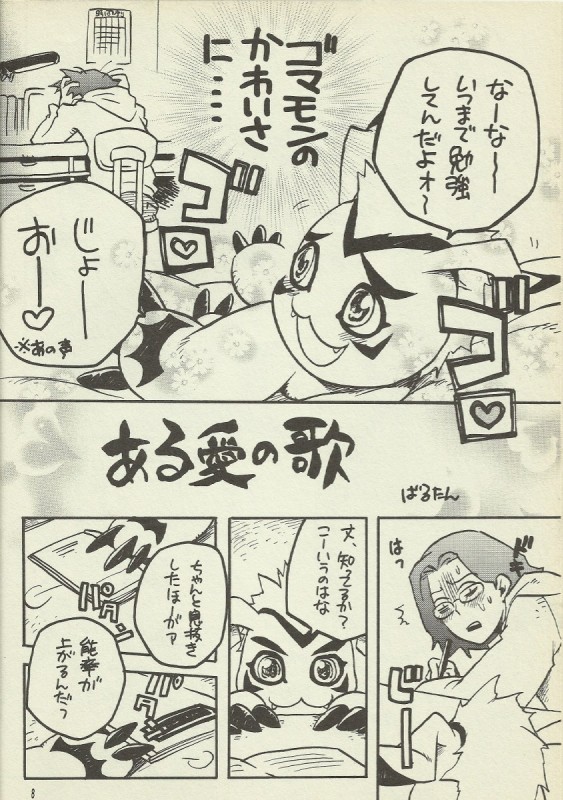 なーなー〜
いつまで勉強
してんだよォ〜
ゴマモンの
かわいさ
に……
ゴロ
ゴロ
じょー
おー
※あの声
ある愛の歌
ばるたん
ドキ
はっ
丈、知ってるか?
こーいうのはな
ちゃんと息抜き
したほーがァ
能率が
上がるんだっ
パタン
パタン
8